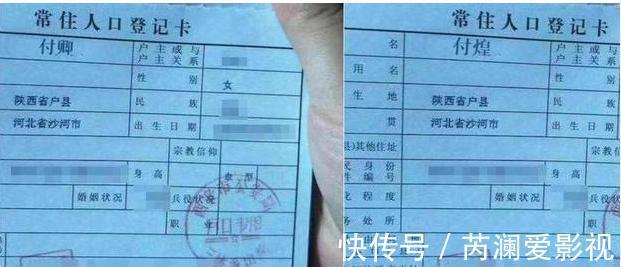 常住人口登记卡
付卿
户主或与
户主关系
性别
女
陕西省户县
民族
河北省沙河市
出生日期
宗教信仰
身高
血型
婚姻状况
兵役状况
职业
常住人口登记卡
名
付煌
户主或与
户主关系
用名
性别
生地
陕西省户县
民族
贯
河北省沙河市
出生日期
县)其他住址
宗教信
民身份
件编号
身高
化程度
婚姻状况
务处所
快传号/芮澜爱影视